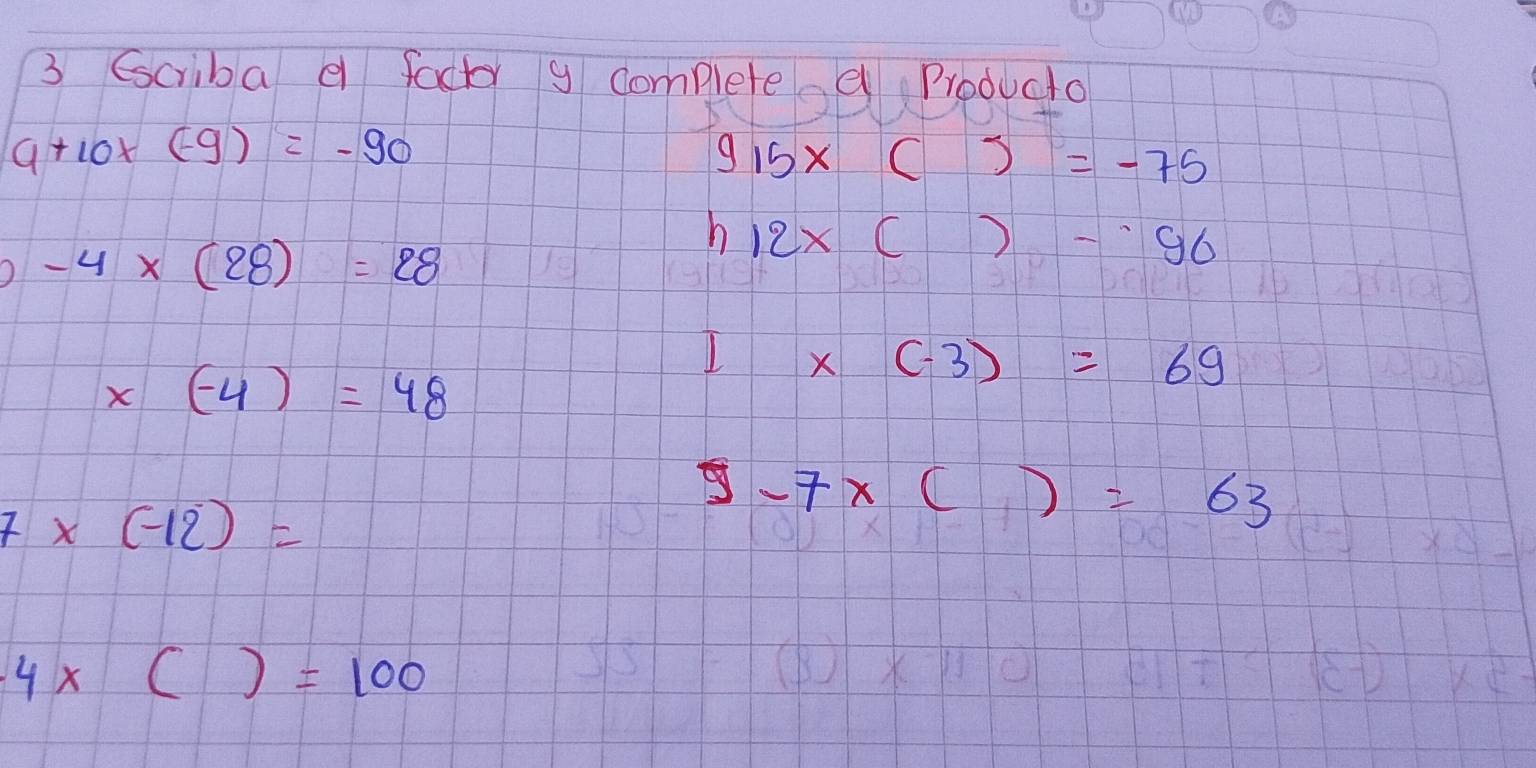 3 Escriba el factor y complete el Producto
a +10x (-9) = -90
-4 x (28) = 28
x (-4) = 48
7 x (-12) =
-4 x ( ) = 100
g 15 x ( ) = -75
h 12 x ( ) - - 96
I x (-3) = 69
-7 x ( ) = 63